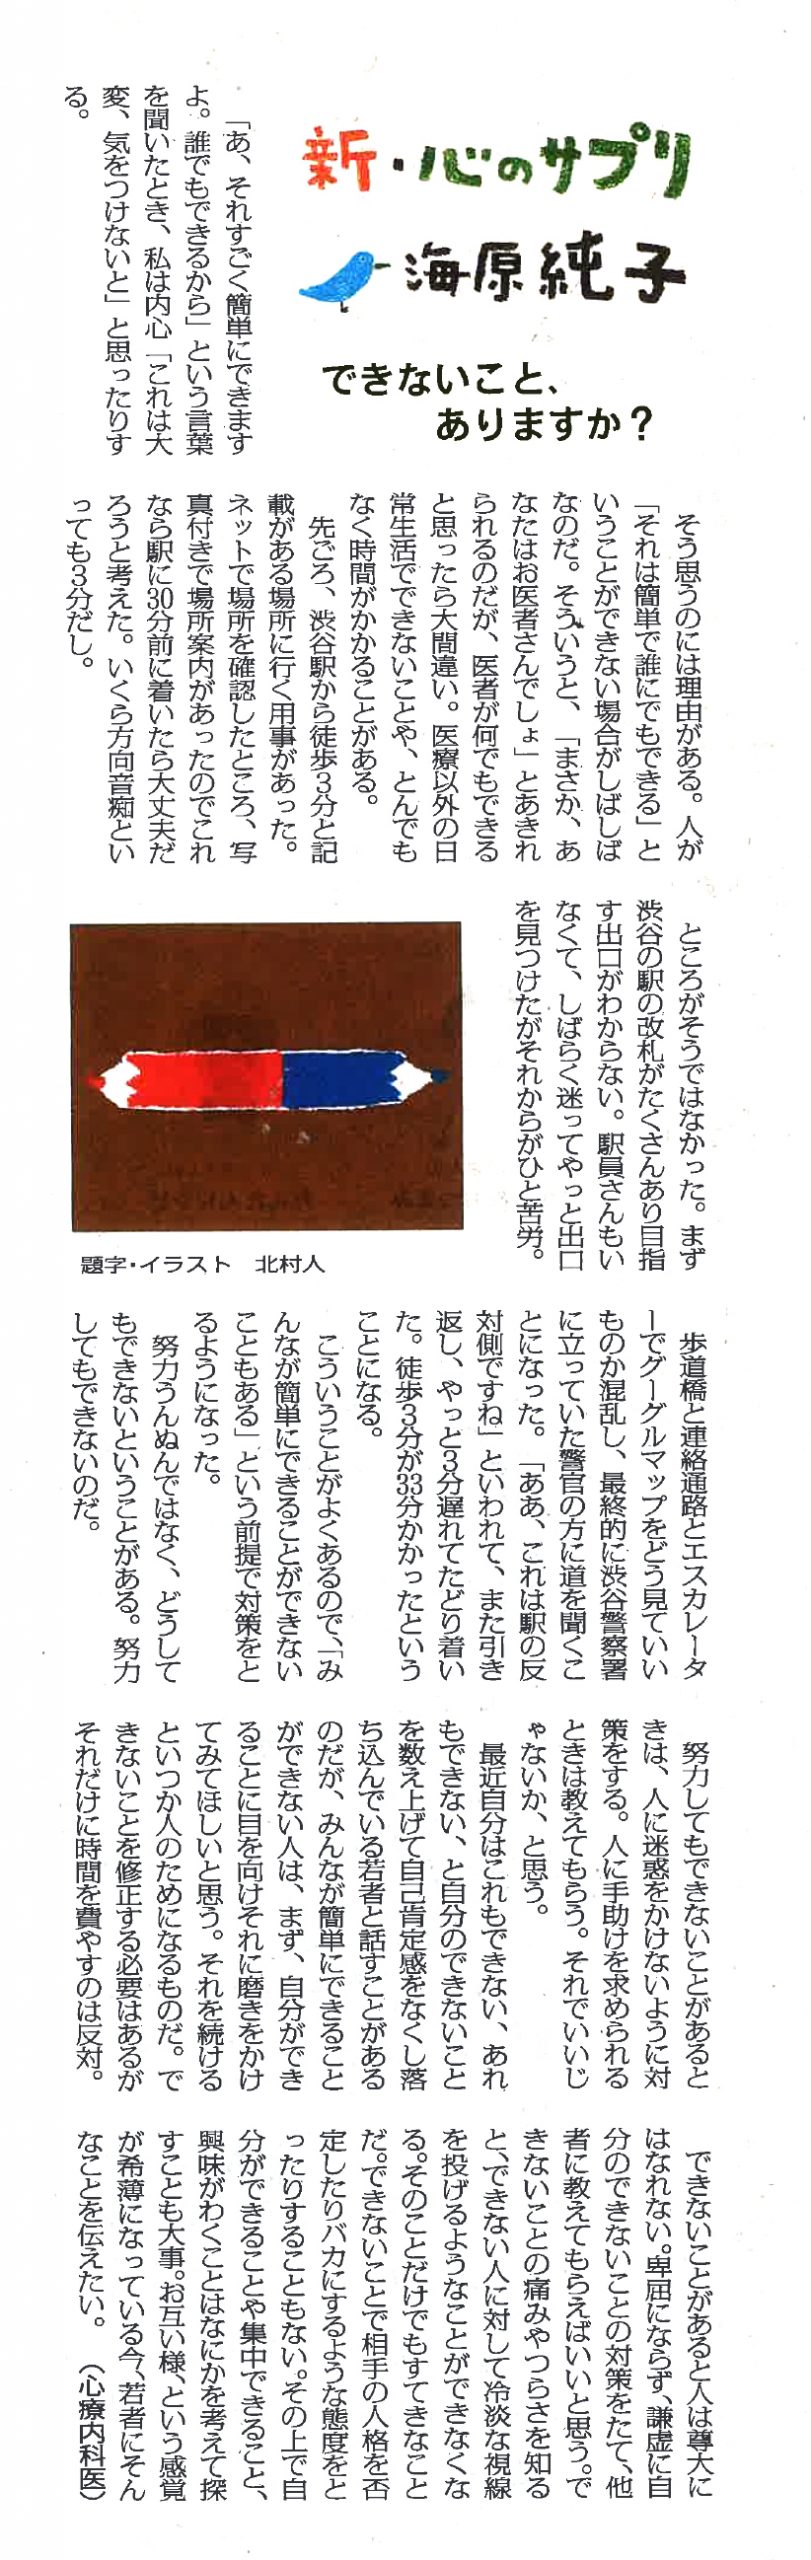 新・心のサプリ
海原純子
できないこと、
ありますか?
「あ、それすごく簡単にできます
よ。誰でもできるから」という言葉
を聞いたとき、私は内心「これは大
変、気をつけないと」と思ったりす
る。
そう思うのには理由がある。人が
「それは簡単で誰にでもできる」と
いうことができない場合がしばしば
なのだ。そういうと、「まさか、あ
なたはお医者さんでしょ」とあきれ
られるのだが、医者が何でもできる
と思ったら大間違い。医療以外の日
常生活でできないことや、とんでも
なく時間がかかることがある。
先ごろ、渋谷駅から徒歩3分と記
載がある場所に行く用事があった。
ネットで場所を確認したところ、写
真付きで場所案内があったのでこれ
なら駅に30分前に着いたら大丈夫だ
ろうと考えた。いくら方向音痴とい
っても3分だし。
ところがそうではなかった。まず
渋谷の駅の改札がたくさんあり目指
す出口がわからない。駅員さんもい
なくて、しばらく迷ってやっと出口
を見つけたがそれからがひと苦労。
題字・イラスト 北村人
歩道橋と連絡通路とエスカレータ
ーでグーグルマップをどう見ていい
ものか混乱し、最終的に渋谷警察署
に立っていた警官の方に道を聞くこ
とになった。「ああ、これは駅の反
対側ですね」といわれて、また引き
返し、やっと3分遅れてたどり着い
た。徒歩3分が33分かかったという
ことになる。
こういうことがよくあるので、「み
んなが簡単にできることができない
こともある」という前提で対策をと
るようになった。
努力うんぬんではなく、どうして
もできないということがある。努力
してもできないのだ。
努力してもできないことがあると
きは、人に迷惑をかけないように対
策をする。人に手助けを求められる
ときは教えてもらう。それでいいじ
ゃないか、と思う。
最近自分はこれもできない、あれ
もできない、と自分のできないこと
を数え上げて自己肯定感をなくし落
ち込んでいる若者と話すことがある
のだが、みんなが簡単にできること
ができない人は、まず、自分ができ
ることに目を向けそれに磨きをかけ
てみてほしいと思う。それを続ける
といつか人のためになるものだ。で
きないことを修正する必要はあるが
それだけに時間を費やすのは反対。
できないことがあると人は尊大に
はなれない。卑屈にならず、謙虚に自
分のできないことの対策をたて、他
者に教えてもらえばいいと思う。で
きないことの痛みやつらさを知る
と、できない人に対して冷淡な視線
を投げるようなことができなくな
る。そのことだけでもすてきなこと
だ。できないことで相手の人格を否
定したりバカにするような態度をと
ったりすることもない。その上で自
分ができることや集中できること、
興味がわくことはなにかを考えて探
すことも大事。お互い様、という感覚
が希薄になっている今、若者にそん
なことを伝えたい。 (心療内科医)